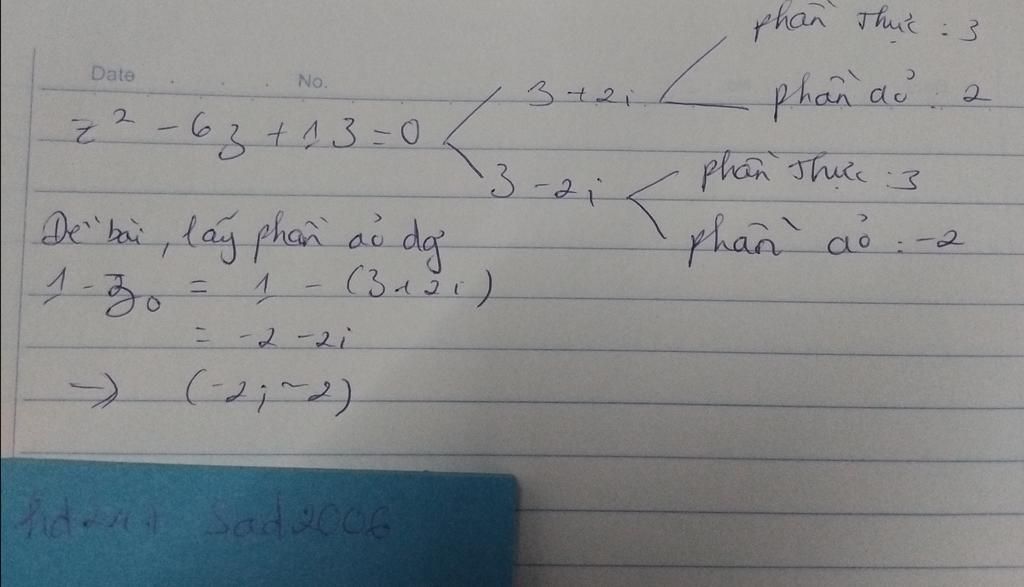 phần thực : 3
Date No.
3 + 2i
phần ảo : 2
z² - 6z + 13 = 0
3 - 2i
phần thực : 3
phần ảo : -2
Đề bài, lấy phần ảo dg
1 - z₀ = 1 - (3+2i)
= -2 - 2i
→ (-2; -2)
Sad2006